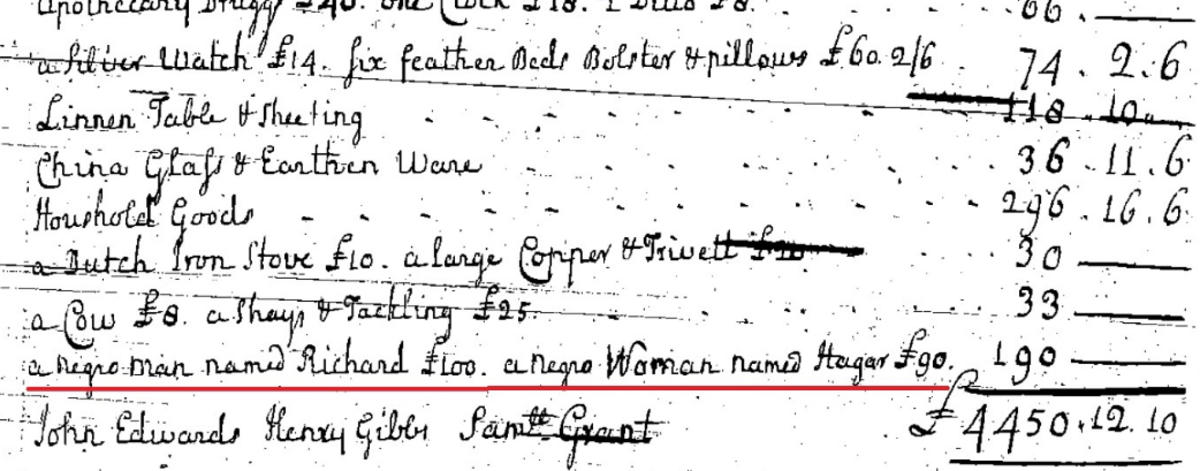 Apothecary Drugg £40. one Clock £18. 66.
a Silver Watch £14. six feather Beds Bolster & pillows £60. 2/6 . 74 . 2 . 6
Linnen Table & Sheeting 118 . 10
China Glass & Earthen Ware 36 . 11 . 6
Houshold Goods 296 . 16 . 6
a Dutch Iron Stove £10. a large Copper & Trivett £20 30
a Cow £8. a Shays & Tackling £25. 33
a negro man named Richard £100. a negro Woman named Hagar £90. 190
John Edwards Henry Gibbs Samll Grant £4450 . 12 . 10